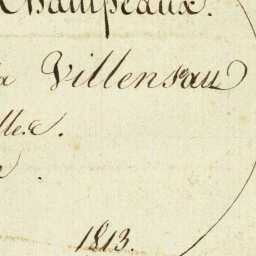 Champeaux.
a Villensau
lle.
1813.